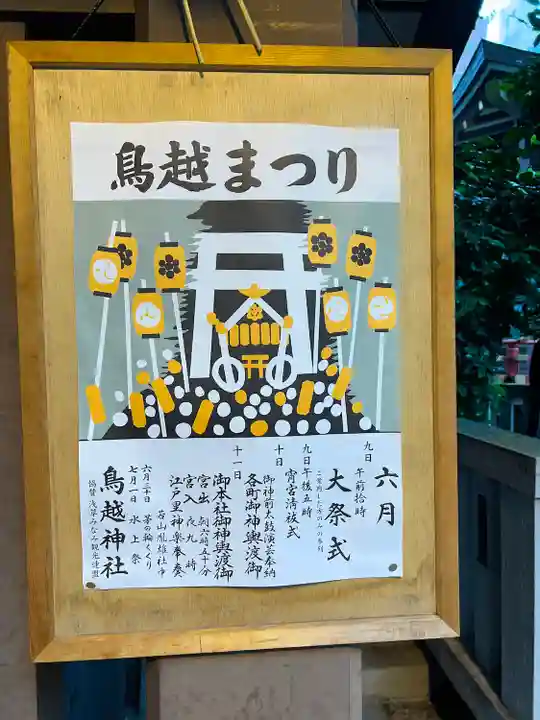 鳥越まつり
六月
九日
午前拾時
大祭式
九日午後五時
宵宮清祓式
十日
御神前太鼓演芸奉納
各町御神輿渡御
十一日
御本社御神輿渡御
宮出 朝六時五十分
宮入 夜九時
江戸里神楽奉奏
若山胤雄社中
六月三十日 茅の輪くぐり
七月一日 水上祭
鳥越神社
協賛 浅草みなみ観光連盟